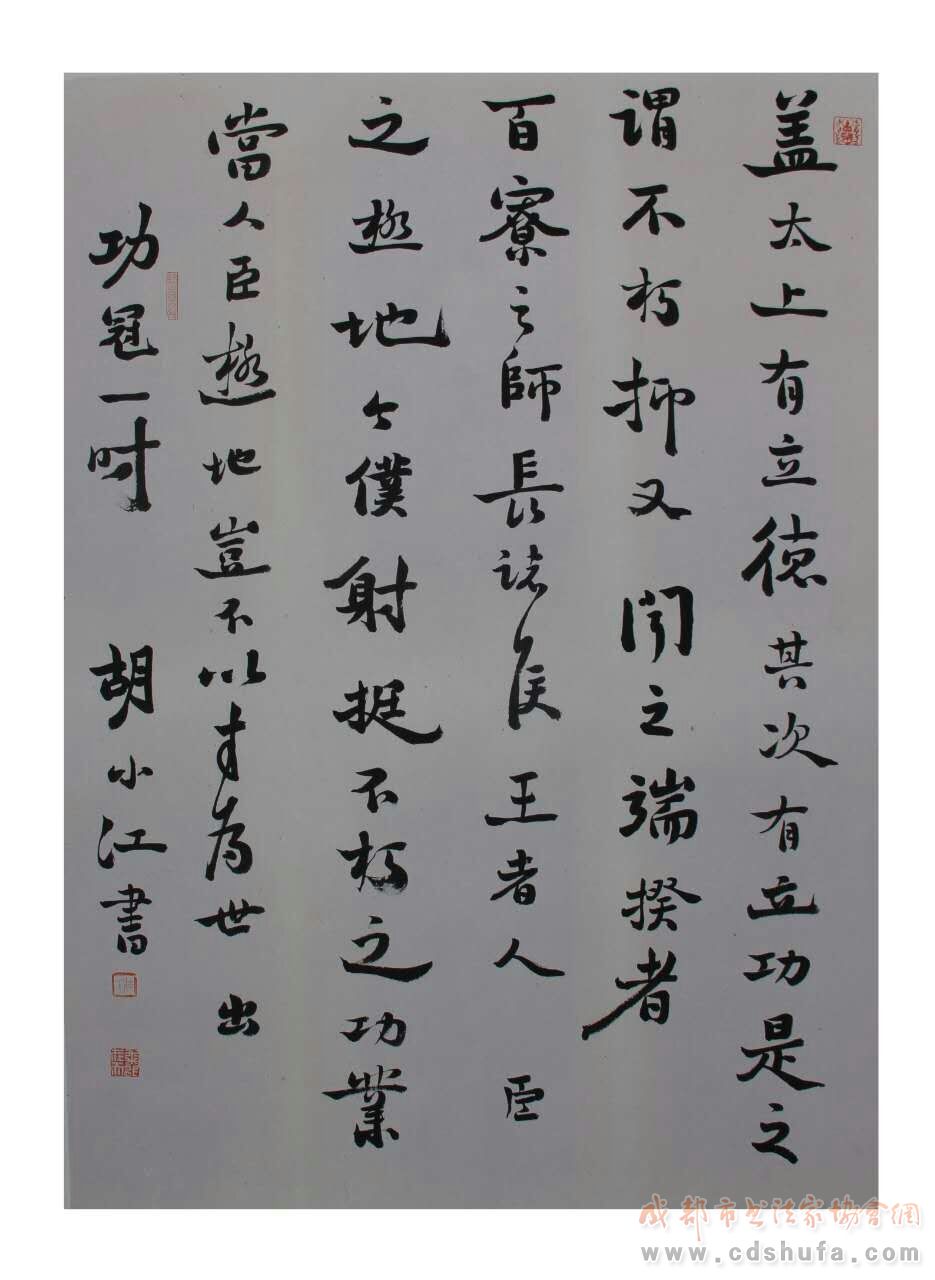 盖太上有立德其次有立功是之
謂不朽抑又聞之端揆者
百寮之師長諸侯王者人臣
之極地今僕射挺不朽之功業
當人臣極地豈不以才為世出
功冠一時
胡小江書
成都市书法家協會網
www.cdshufa.com